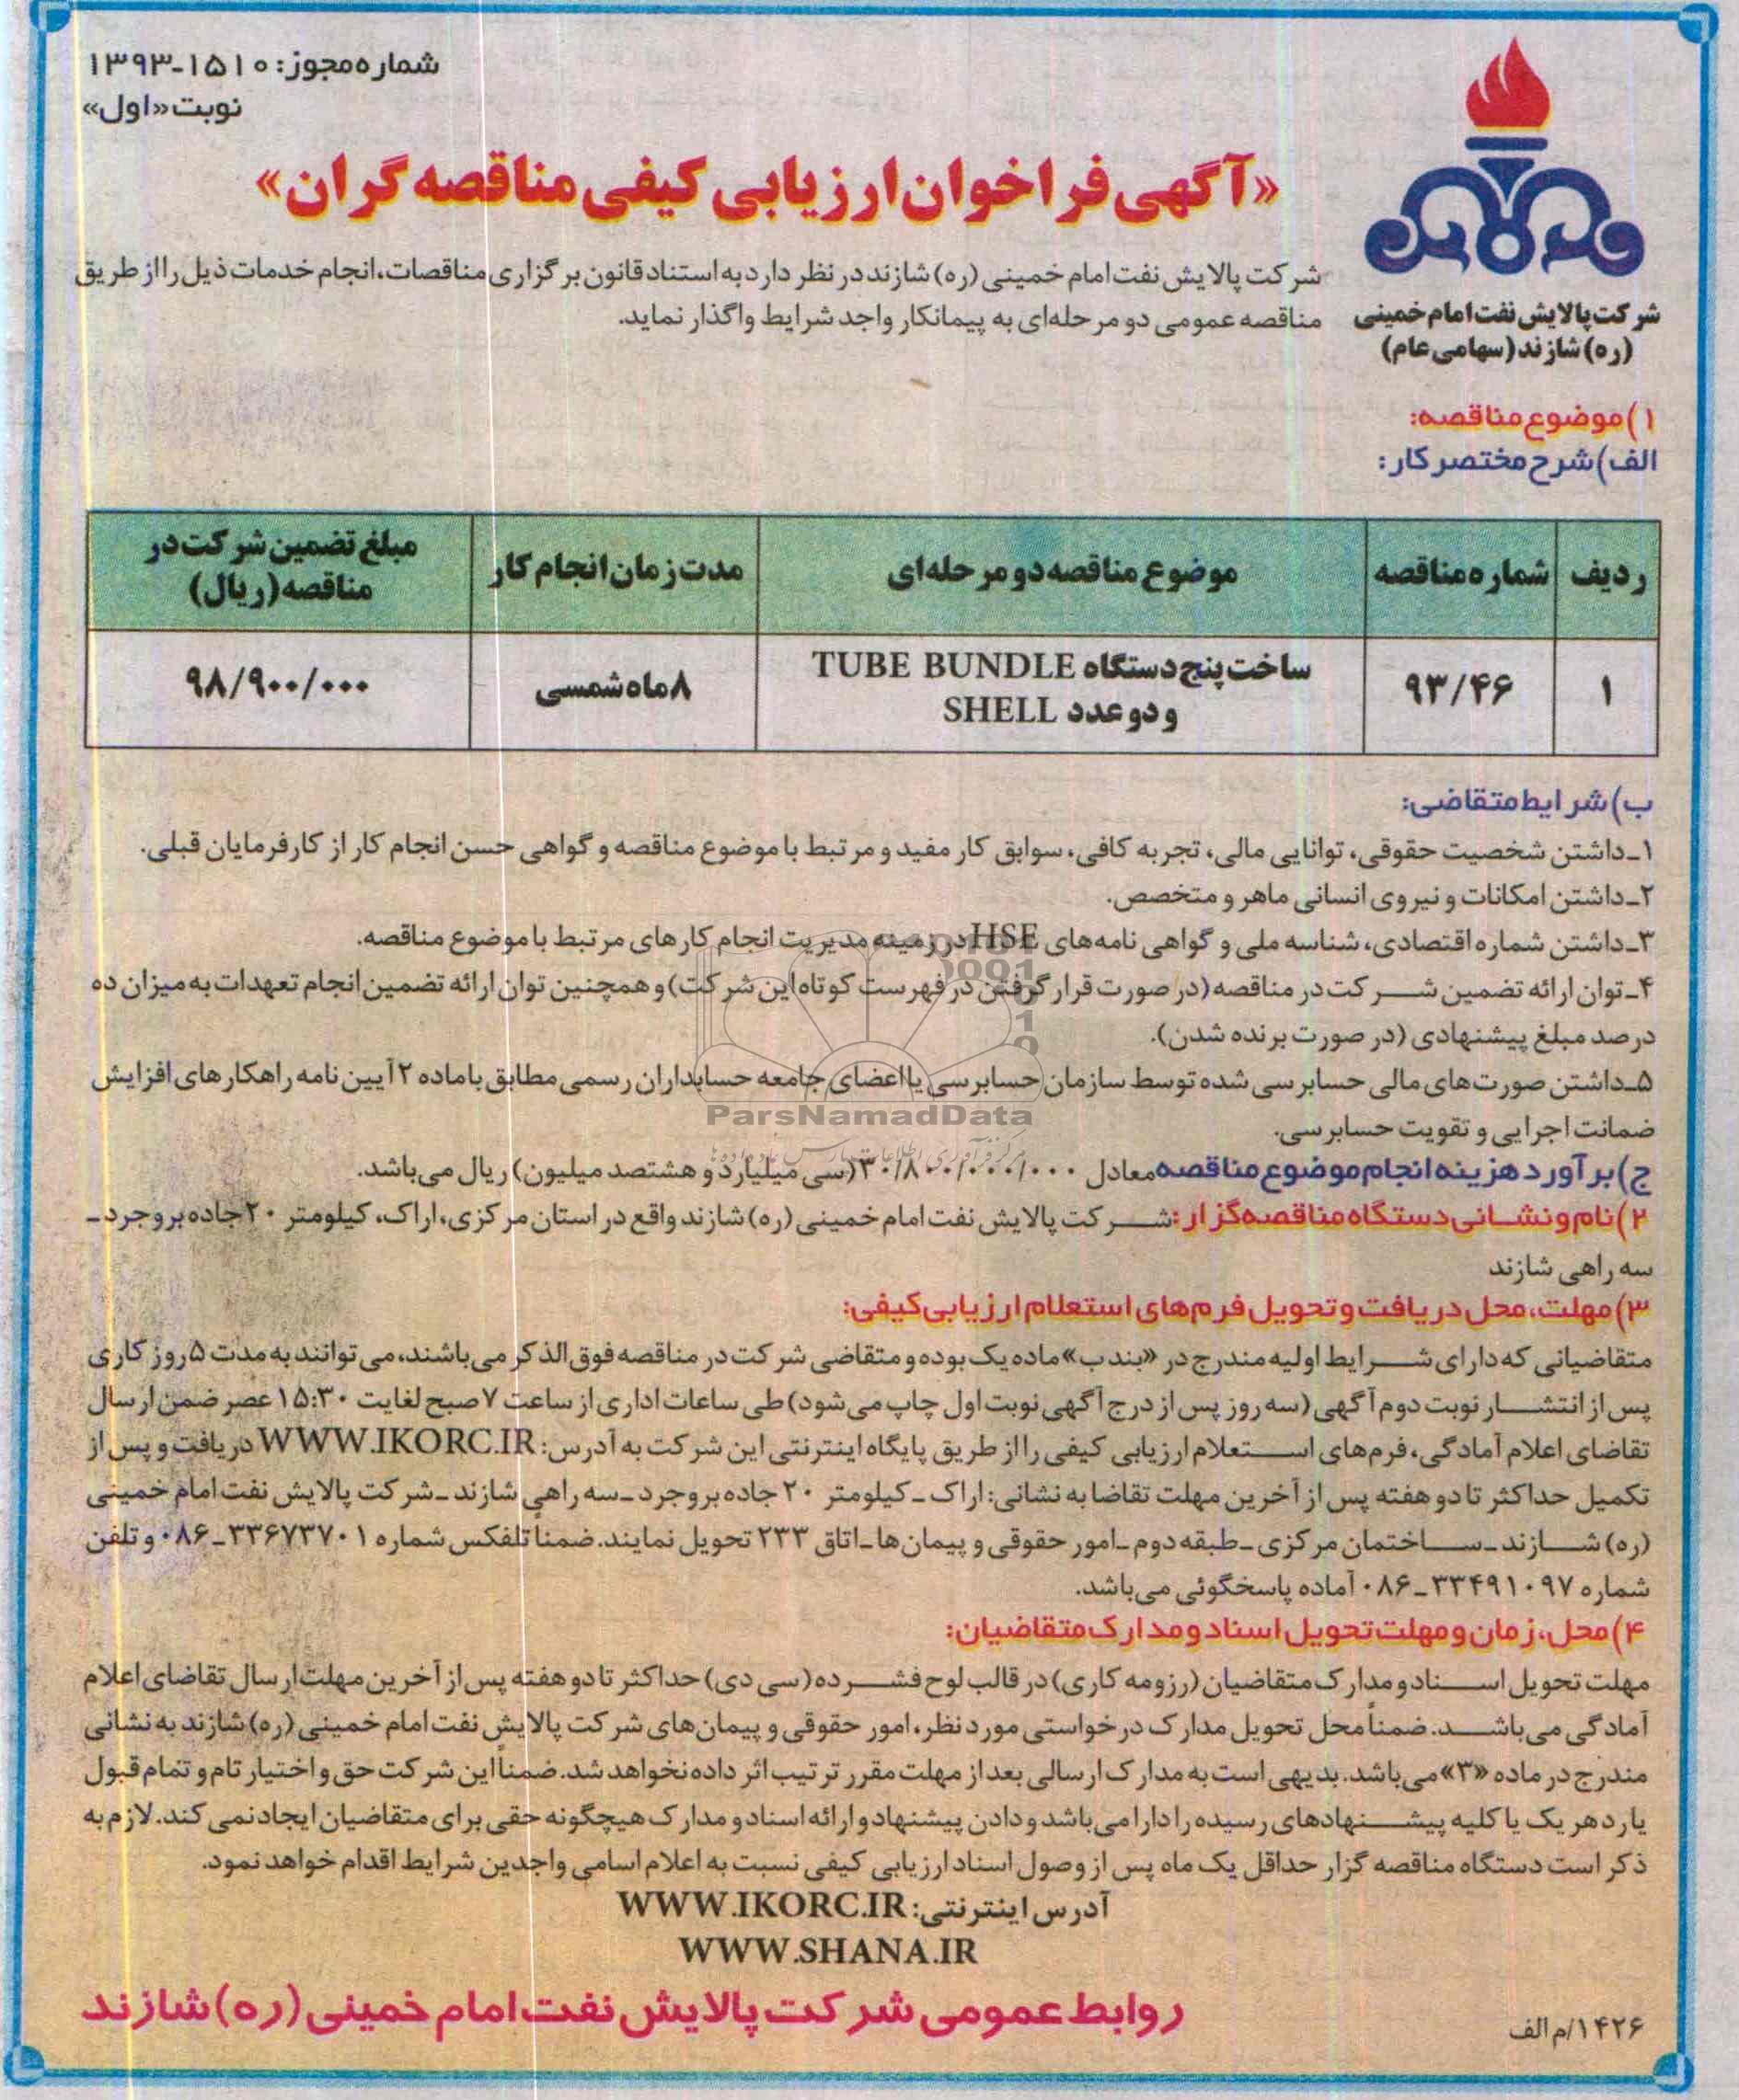 شماره مجوز: ۱۵۱۰-۱۳۹۳
نوبت «اول»
«آگهی فراخوان ارزیابی کیفی مناقصه گران»
شرکت پالایش نفت امام خمینی
(ره) شازند (سهامی عام)
شرکت پالایش نفت امام خمینی (ره) شازند در نظر دارد به استناد قانون برگزاری مناقصات، انجام خدمات ذیل را از طریق
مناقصه عمومی دو مرحله‌ای به پیمانکار واجد شرایط واگذار نماید.
۱) موضوع مناقصه:
الف) شرح مختصر کار:
ردیف شماره مناقصه موضوع مناقصه دو مرحله‌ای مدت زمان انجام کار مبلغ تضمین شرکت در مناقصه (ریال)
۱ ۹۳/۴۶ ساخت پنج دستگاه TUBE BUNDLE و دو عدد SHELL ۸ ماه شمسی ۹۸/۹۰۰/۰۰۰
ب) شرایط متقاضی:
۱ـ داشتن شخصیت حقوقی، توانایی مالی، تجربه کافی، سوابق کار مفید و مرتبط با موضوع مناقصه و گواهی حسن انجام کار از کارفرمایان قبلی.
۲ـ داشتن امکانات و نیروی انسانی ماهر و متخصص.
۳ـ داشتن شماره اقتصادی، شناسه ملی و گواهی نامه‌های HSE در زمینه مدیریت انجام کارهای مرتبط با موضوع مناقصه.
۴ـ توان ارائه تضمین شرکت در مناقصه (در صورت قرار گرفتن در فهرست کوتاه این شرکت) و همچنین توان ارائه تضمین انجام تعهدات به میزان ده
درصد مبلغ پیشنهادی (در صورت برنده شدن).
۵ـ داشتن صورت‌های مالی حسابرسی شده توسط سازمان حسابرسی یا اعضای جامعه حسابداران رسمی مطابق با ماده ۲ آیین نامه راهکارهای افزایش
ضمانت اجرایی و تقویت حسابرسی.
ParsNamadData
ج) برآورد هزینه انجام موضوع مناقصه معادل ۳۰/۸۰۰/۰۰۰/۰۰۰ (سی میلیارد و هشتصد میلیون) ریال می‌باشد.
۲) نام و نشانی دستگاه مناقصه‌گزار: شرکت پالایش نفت امام خمینی (ره) شازند واقع در استان مرکزی، اراک، کیلومتر ۲۰ جاده بروجرد ـ
سه راهی شازند
۳) مهلت، محل دریافت و تحویل فرم‌های استعلام ارزیابی کیفی:
متقاضیانی که دارای شرایط اولیه مندرج در «بند ب» ماده یک بوده و متقاضی شرکت در مناقصه فوق الذکر می‌باشند، می‌توانند به مدت ۵ روز کاری
پس از انتشار نوبت دوم آگهی (سه روز پس از درج آگهی نوبت اول چاپ می‌شود) طی ساعات اداری از ساعت ۷ صبح لغایت ۱۵:۳۰ عصر ضمن ارسال
تقاضای اعلام آمادگی، فرم‌های استعلام ارزیابی کیفی را از طریق پایگاه اینترنتی این شرکت به آدرس: WWW.IKORC.IR دریافت و پس از
تکمیل حداکثر تا دو هفته پس از آخرین مهلت تقاضا به نشانی: اراک ـ کیلومتر ۲۰ جاده بروجرد ـ سه راهی شازند ـ شرکت پالایش نفت امام خمینی
(ره) شازند ـ ساختمان مرکزی ـ طبقه دوم ـ امور حقوقی و پیمان ها ـ اتاق ۲۳۳ تحویل نمایند. ضمنا تلفکس شماره ۳۳۶۷۳۷۰۱ـ۰۸۶ و تلفن
شماره ۳۳۴۹۱۰۹۷ـ۰۸۶ آماده پاسخگوئی می‌باشد.
۴) محل، زمان و مهلت تحویل اسناد و مدارک متقاضیان:
مهلت تحویل اسناد و مدارک متقاضیان (رزومه کاری) در قالب لوح فشرده (سی دی) حداکثر تا دو هفته پس از آخرین مهلت ارسال تقاضای اعلام
آمادگی می‌باشد. ضمناً محل تحویل مدارک درخواستی مورد نظر، امور حقوقی و پیمان‌های شرکت پالایش نفت امام خمینی (ره) شازند به نشانی
مندرج در ماده «۳» می‌باشد. بدیهی است به مدارک ارسالی بعد از مهلت مقرر ترتیب اثر داده نخواهد شد. ضمناً این شرکت حق و اختیار تام و تمام قبول
یا رد هر یک یا کلیه پیشنهادهای رسیده را دارا می‌باشد و دادن پیشنهاد و ارائه اسناد و مدارک هیچگونه حقی برای متقاضیان ایجاد نمی کند. لازم به
ذکر است دستگاه مناقصه گزار حداقل یک ماه پس از وصول اسناد ارزیابی کیفی نسبت به اعلام اسامی واجدین شرایط اقدام خواهد نمود.
آدرس اینترنتی: WWW.IKORC.IR
WWW.SHANA.IR
روابط عمومی شرکت پالایش نفت امام خمینی (ره) شازند
۱۴۲۶/م الف